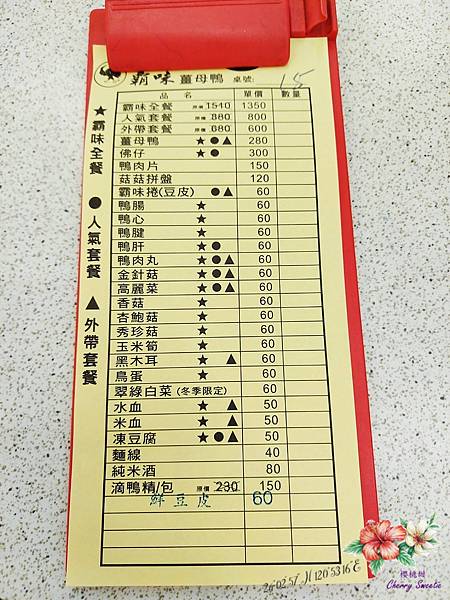 霸味 薑母鴨 桌號: 15
品名 單價 數量
霸味全餐 原價 1540 1350
人氣套餐 原價 880 800
外帶套餐 原價 680 600
薑母鴨 ★●▲ 280
佛仔 ★● 300
鴨肉片 150
菇菇拼盤 120
霸味捲(豆皮) ●▲ 60
鴨腸 ★ 60
鴨心 ★ 60
鴨腱 ★ 60
鴨肝 ★● 60
鴨肉丸 ★●▲ 60
金針菇 ★●▲ 60
高麗菜 ★●▲ 60
香菇 ★ 60
杏鮑菇 ★ 60
秀珍菇 ★ 60
玉米筍 ★ 60
黑木耳 ★ ▲ 60
鳥蛋 ★ 60
翠綠白菜 (冬季限定) 60
水血 ★ ▲ 50
米血 ★ ▲ 50
凍豆腐 ★●▲ 50
麵線 40
純米酒 80
滴鴨精/包 原價 230 150
鮮豆皮 60
★霸味全餐 ●人氣套餐 ▲外帶套餐
櫻桃甜
Cherry Sweetie
26°02'57"N 120°53'16"E